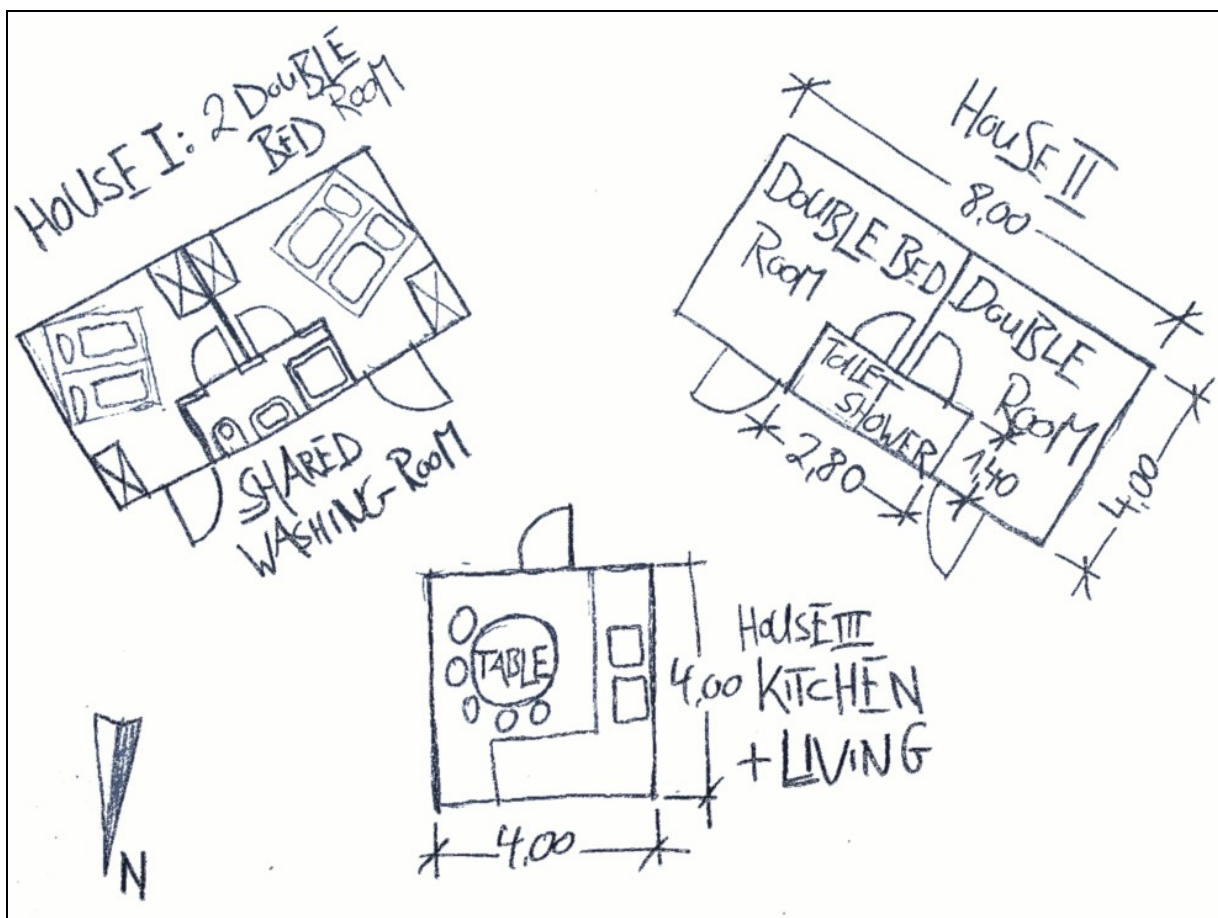 HOUSE I: 2 DOUBLE
BED ROOM
SHARED
WASHING-ROOM
HOUSE II
8,00
DOUBLE BED
ROOM
DOUBLE
ROOM
TOILET
SHOWER
2,80
1,40
4,00
TABLE
HOUSE III
4,00 KITCHEN
+ LIVING
4,00
N